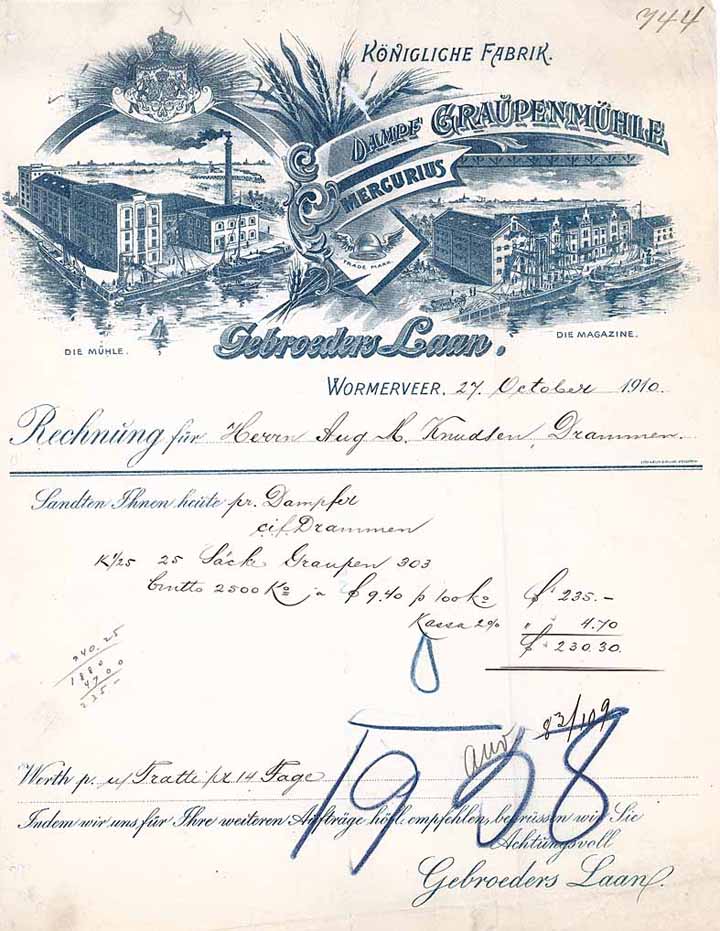 744
KÖNIGLICHE FABRIK.
DAMPF GRAŬPENMÜHLE
MERCURIUS
TRADE MARK
DIE MÜHLE.
DIE MAGAZINE.
Gebroeders Laan.
WORMERVEER, 27. October 1910.
Rechnung für Herrn Aug M. Knudsen, Drammen.
Sandten Ihnen heute pr. Dampfer
cif Drammen
K 1/25 25 Säck Graupen 303
brutto 2500 Ko a ƒ 9.40 p 100 Ko ƒ 235.-
Kassa 2% " 4.70
ƒ 230.30.
940.25
1880
4700
235-
83/109
1958
Werth p. u/ Tratte pr 14 Tage
Indem wir uns für Ihre weiteren Aufträge höfl. empfehlen, begrüssen wir Sie
Achtungsvoll
Gebroeders Laan.